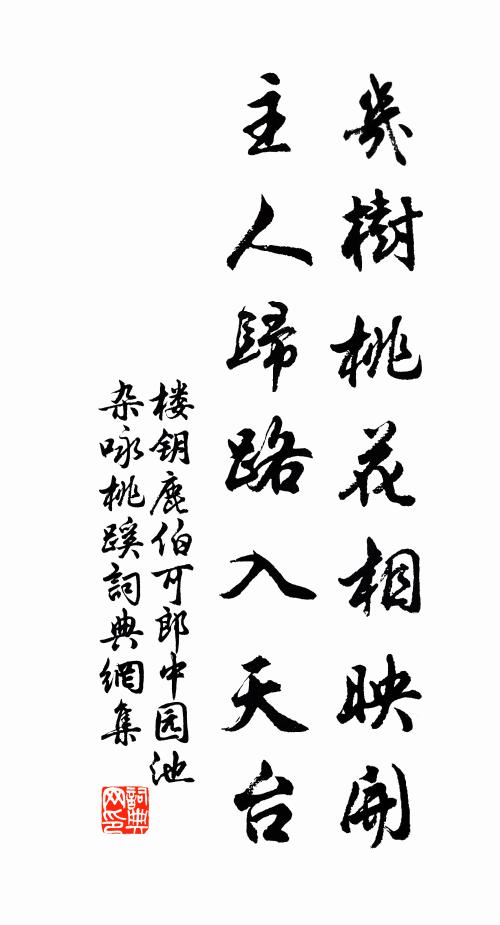 幾樹桃花相映開
主人歸路入天台
楼钥鹿伯可郎中园池
杂咏桃蹊詞典網集
詞典网印